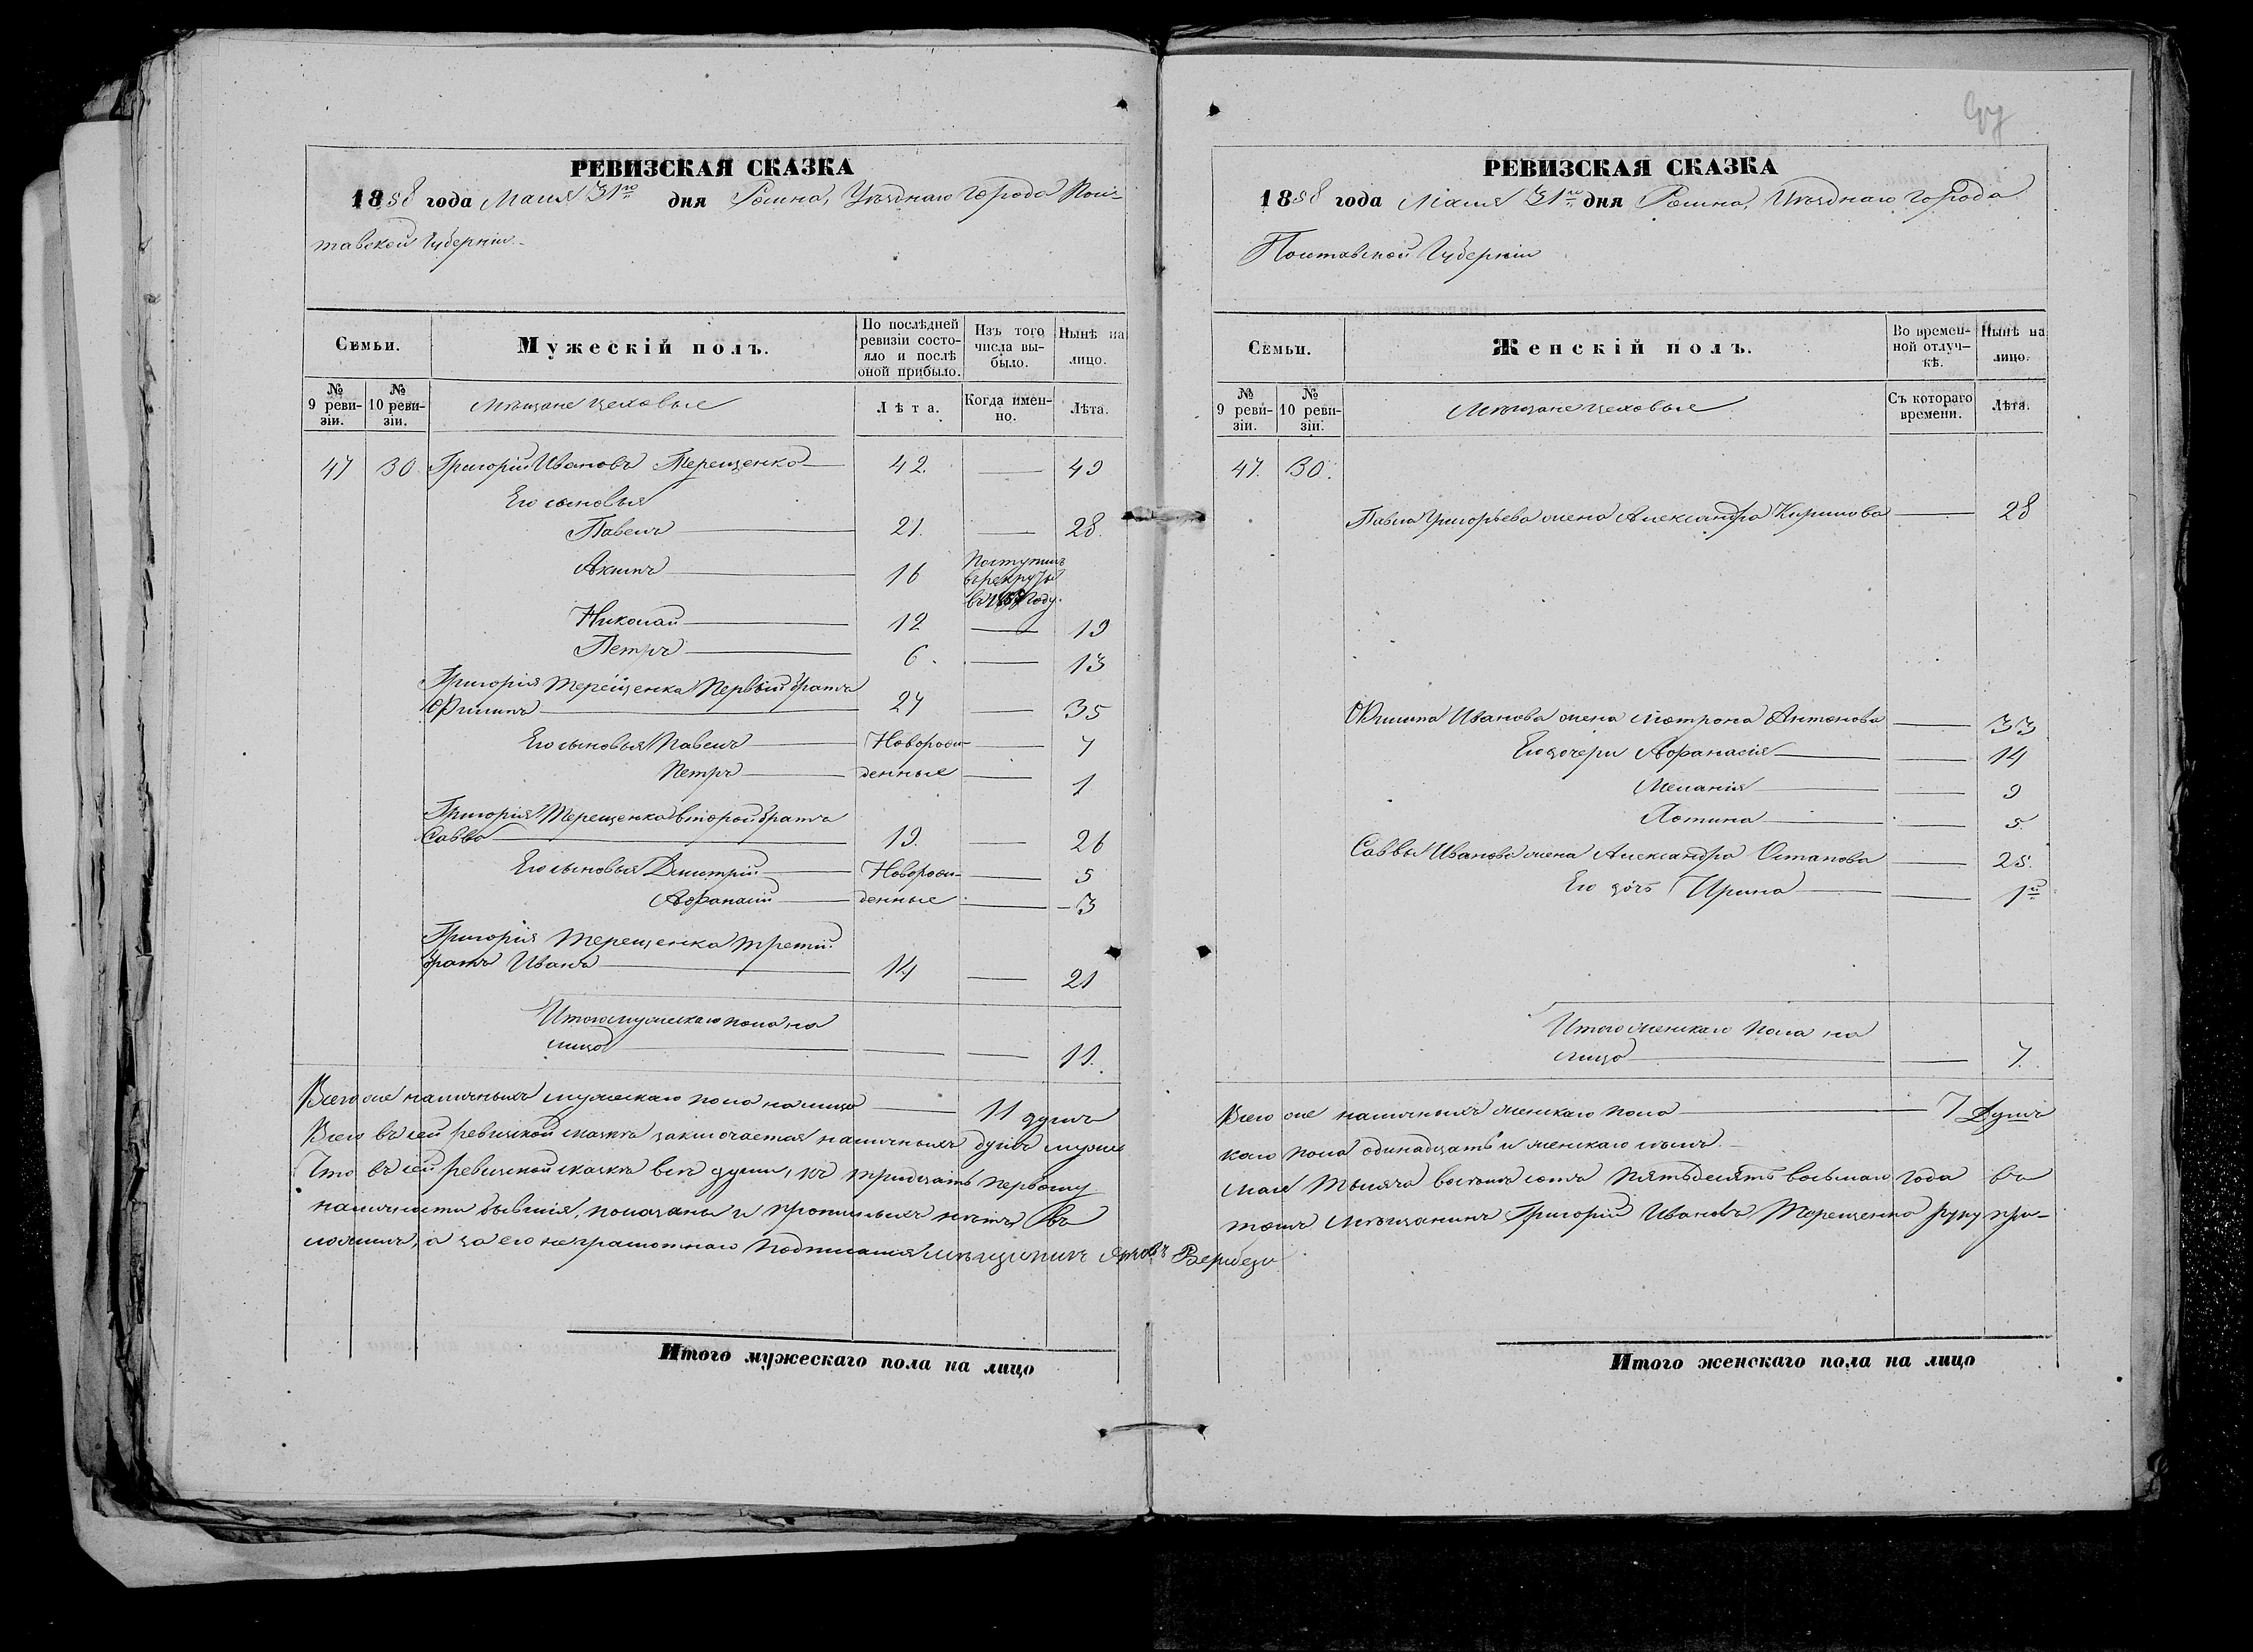 РЕВИЗСКАЯ СКАЗКА
1858 года Маия 31го дня Ромна, Уѣзднаго города Пол-
тавской Губерніи
Семьи.
Мужескій полъ.
По послѣдней ревизіи состояло и послѣ оной прибыло.
Изъ того числа выбыло.
Нынѣ на лицо.
№ 9 ревизіи.
№ 10 ревизіи.
Мѣщане цеховые
Лѣта.
Когда именно.
Лѣта.
47 30 Григорій Ивановъ Терещенко 42. 49
Его сыновья
Павелъ 21. 28.
Акимъ 16 Поступилъ
въ рекруты
въ году.
Николай 12 19
Петръ 6. 13
Григорія Терещенка Первый братъ
Филипъ 27 35
Его сыновья Павелъ Новорож- 7
Петръ денные 1
Григорія Терещенка второй братъ
Савва 19. 26
Его сыновья Дмитрій Новорож- 5
Афанасій денные 3
Григорія Терещенка третій
братъ Иванъ 14 21
Итого мужескаго пола на
лицо 11.
Всего же наличныхъ мужескаго пола на лицо 11 душъ
Всего въ сей ревизской сказкѣ заключается наличныхъ душъ мужес
Что въ сей ревизской сказкѣ всѣ души, къ тридцать первому
наличности бывшія, показаны и прописныхъ нѣтъ, въ
ложилъ, а за его неграмотнаго подписался мѣщанинъ
Итого мужескаго пола на лицо
РЕВИЗСКАЯ СКАЗКА
1858 года Маия 31го дня Ромна, Уѣзднаго города
Полтавской Губерніи
Семьи.
Женскій полъ.
Во временной отлучкѣ.
Нынѣ на лицо.
№ 9 ревизіи.
№ 10 ревизіи.
Мѣщане цеховые
Съ котораго времени.
Лѣта.
47. 30.
Павла Григорьева жена Александра Кирилова 28
Филипа Иванова жена Мотрона Антонова 33
Его дочери Афанасія 14
Меланія 9
Хотина 5.
Саввы Иванова жена Александра Остапова 25.
Его дочь Ирина 1й
Итого женскаго пола на
лицо 7.
Всего же наличныхъ женскаго пола 7 Душъ
каго пола одинадцать и женскаго
мая тысяча восемь сотъ пятьдесятъ восьмаго года въ
томъ мѣщанинъ Григорій Ивановъ Терещенко руку при-
Итого женскаго пола на лицо